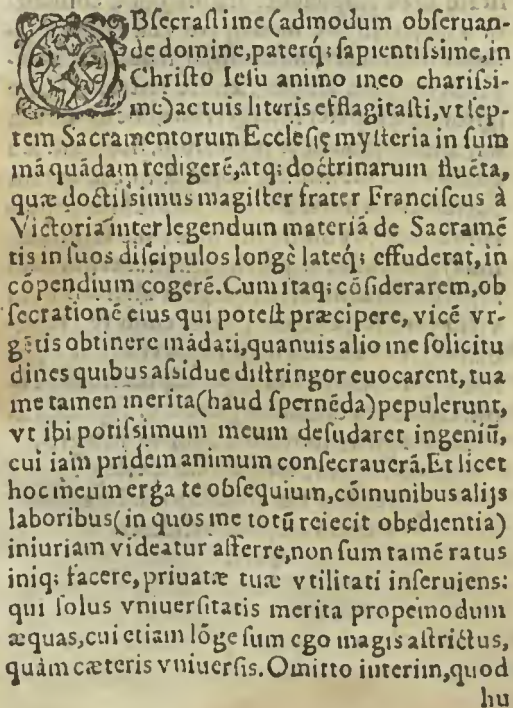 OBſecraſti me (admodum obſeruan-
de domine, paterq; ſapientiſsime, in
Chriſto Ieſu animo meo chariſsi-
me) ac tuis literis efflagitaſti, vt ſep-
tem Sacramentorum Eccleſię myſteria in ſum
mā quādam redigerē, atq; doctrinarum flućta,
quæ doctiſsimus magiſter frater Franciſcus à
Victoria inter legendum materiā de Sacramē
tis in ſuos diſcipulos longè lateq; effuderat, in
cōpendium cogerē. Cum itaq; cōſiderarem, ob
ſecrationē eius qui poteſt præcipere, vicē vr-
gētis obtinere mādati, quanuis alio me ſolicitu
dines quibus aſsidue diſtringor euocarent, tua
me tamen merita (haud ſpernēda) pepulerunt,
vt ibi potiſsimum meum deſudaret ingeniū,
cui iam pridem animum conſecrauerā. Et licet
hoc meum erga te obſequium, cōmunibus alijs
laboribus (in quos me totū reiecit obędientia)
iniuriam videatur afferre, non ſum tamē ratus
iniq; facere, priuatæ tuæ vtilitati inſeruiens:
qui ſolus vniuerſitatis merita propemodum
æquas, cui etiam lōge ſum ego magis aſtrictus,
quàm cæteris vniuerſis. Omitto interim, quod
hu